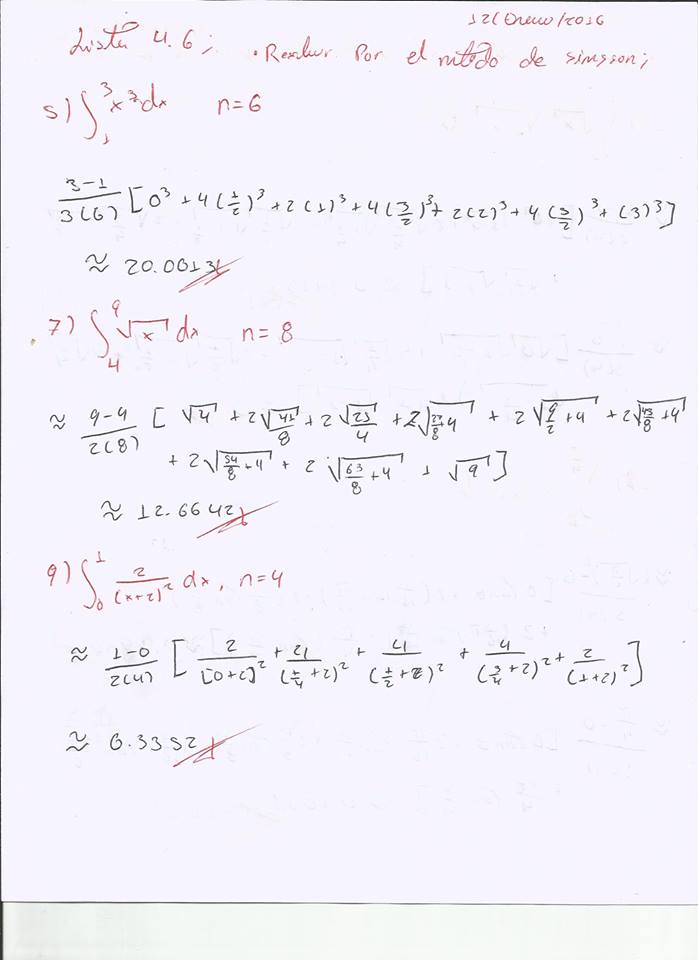 12/Enero/2016
Lista 4.6; • Resolver por el método de simpson;
5) ∫₁³ x³ dx n=6
3-1/3(6) [0³ + 4(1/2)³ + 2(1)³ + 4(3/2)³ + 2(2)³ + 4(5/2)³ + (3)³]
≈ 20.0013
7) ∫₄⁹ √x dx n=8
≈ 9-4/2(8) [√4 + 2√41/8 + 2√23/4 + 2√(27/8+4) + 2√(9/2+4) + 2√(45/8+4)
+ 2√(54/8+4) + 2√(63/8+4) + √9]
≈ 12.6642
9) ∫₀¹ 2/(x+2)² dx, n=4
≈ 1-0/2(4) [2/[0+2]² + 4/(1/4+2)² + 4/(1/2+2)² + 4/(3/4+2)² + 2/(1+2)²]
≈ 0.3352